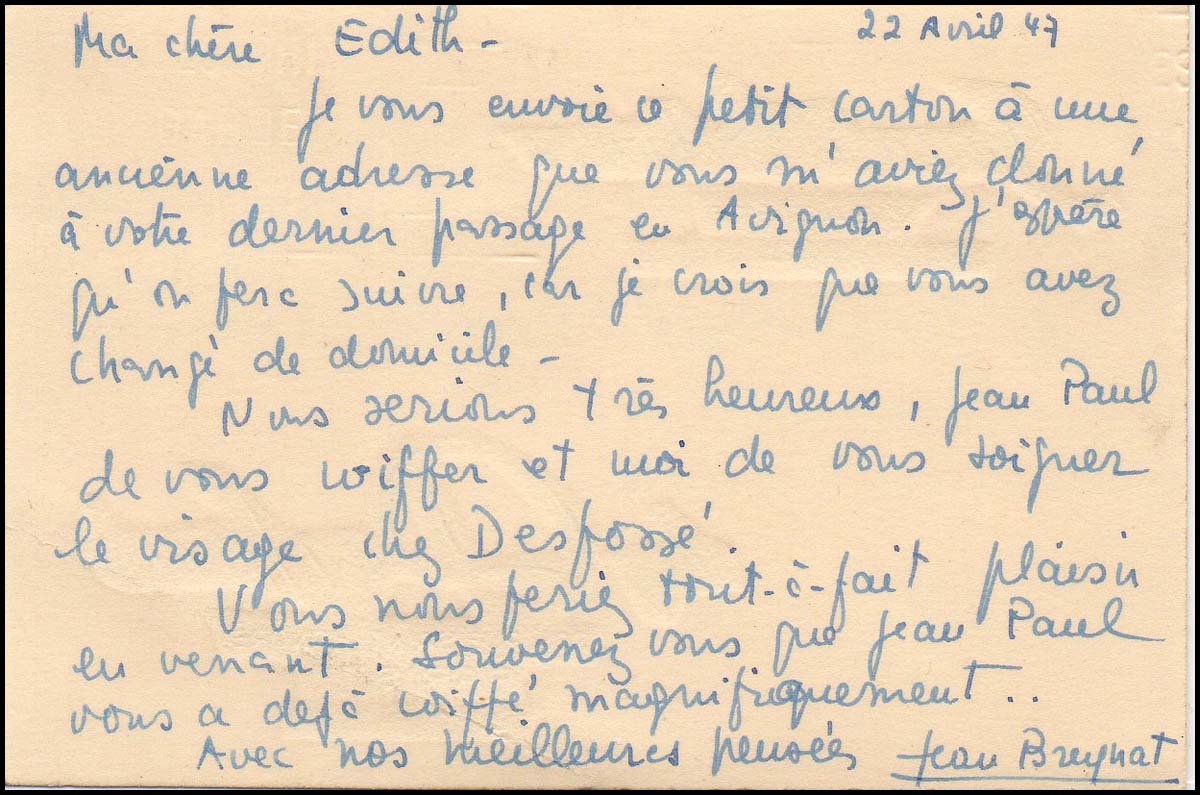 Ma chère Edith -
22 Avril 47
Je vous envoie ce petit carton à une
anciénne adresse que vous m'aviez donné
à votre dernier passage en Avignon. J'espère
qu'on fera suivre, car je crois que vous avez
changé de domicile -
Nous serions très heureux, Jean Paul
de vous coiffer et moi de vous soigner
le visage chez Desfossé.
Vous nous feriez tout-à-fait plaisir
en venant. Souvenez vous que Jean Paul
vous a dejà coiffé magnifiquement..
Avec nos meilleures pensées Jean Breynat